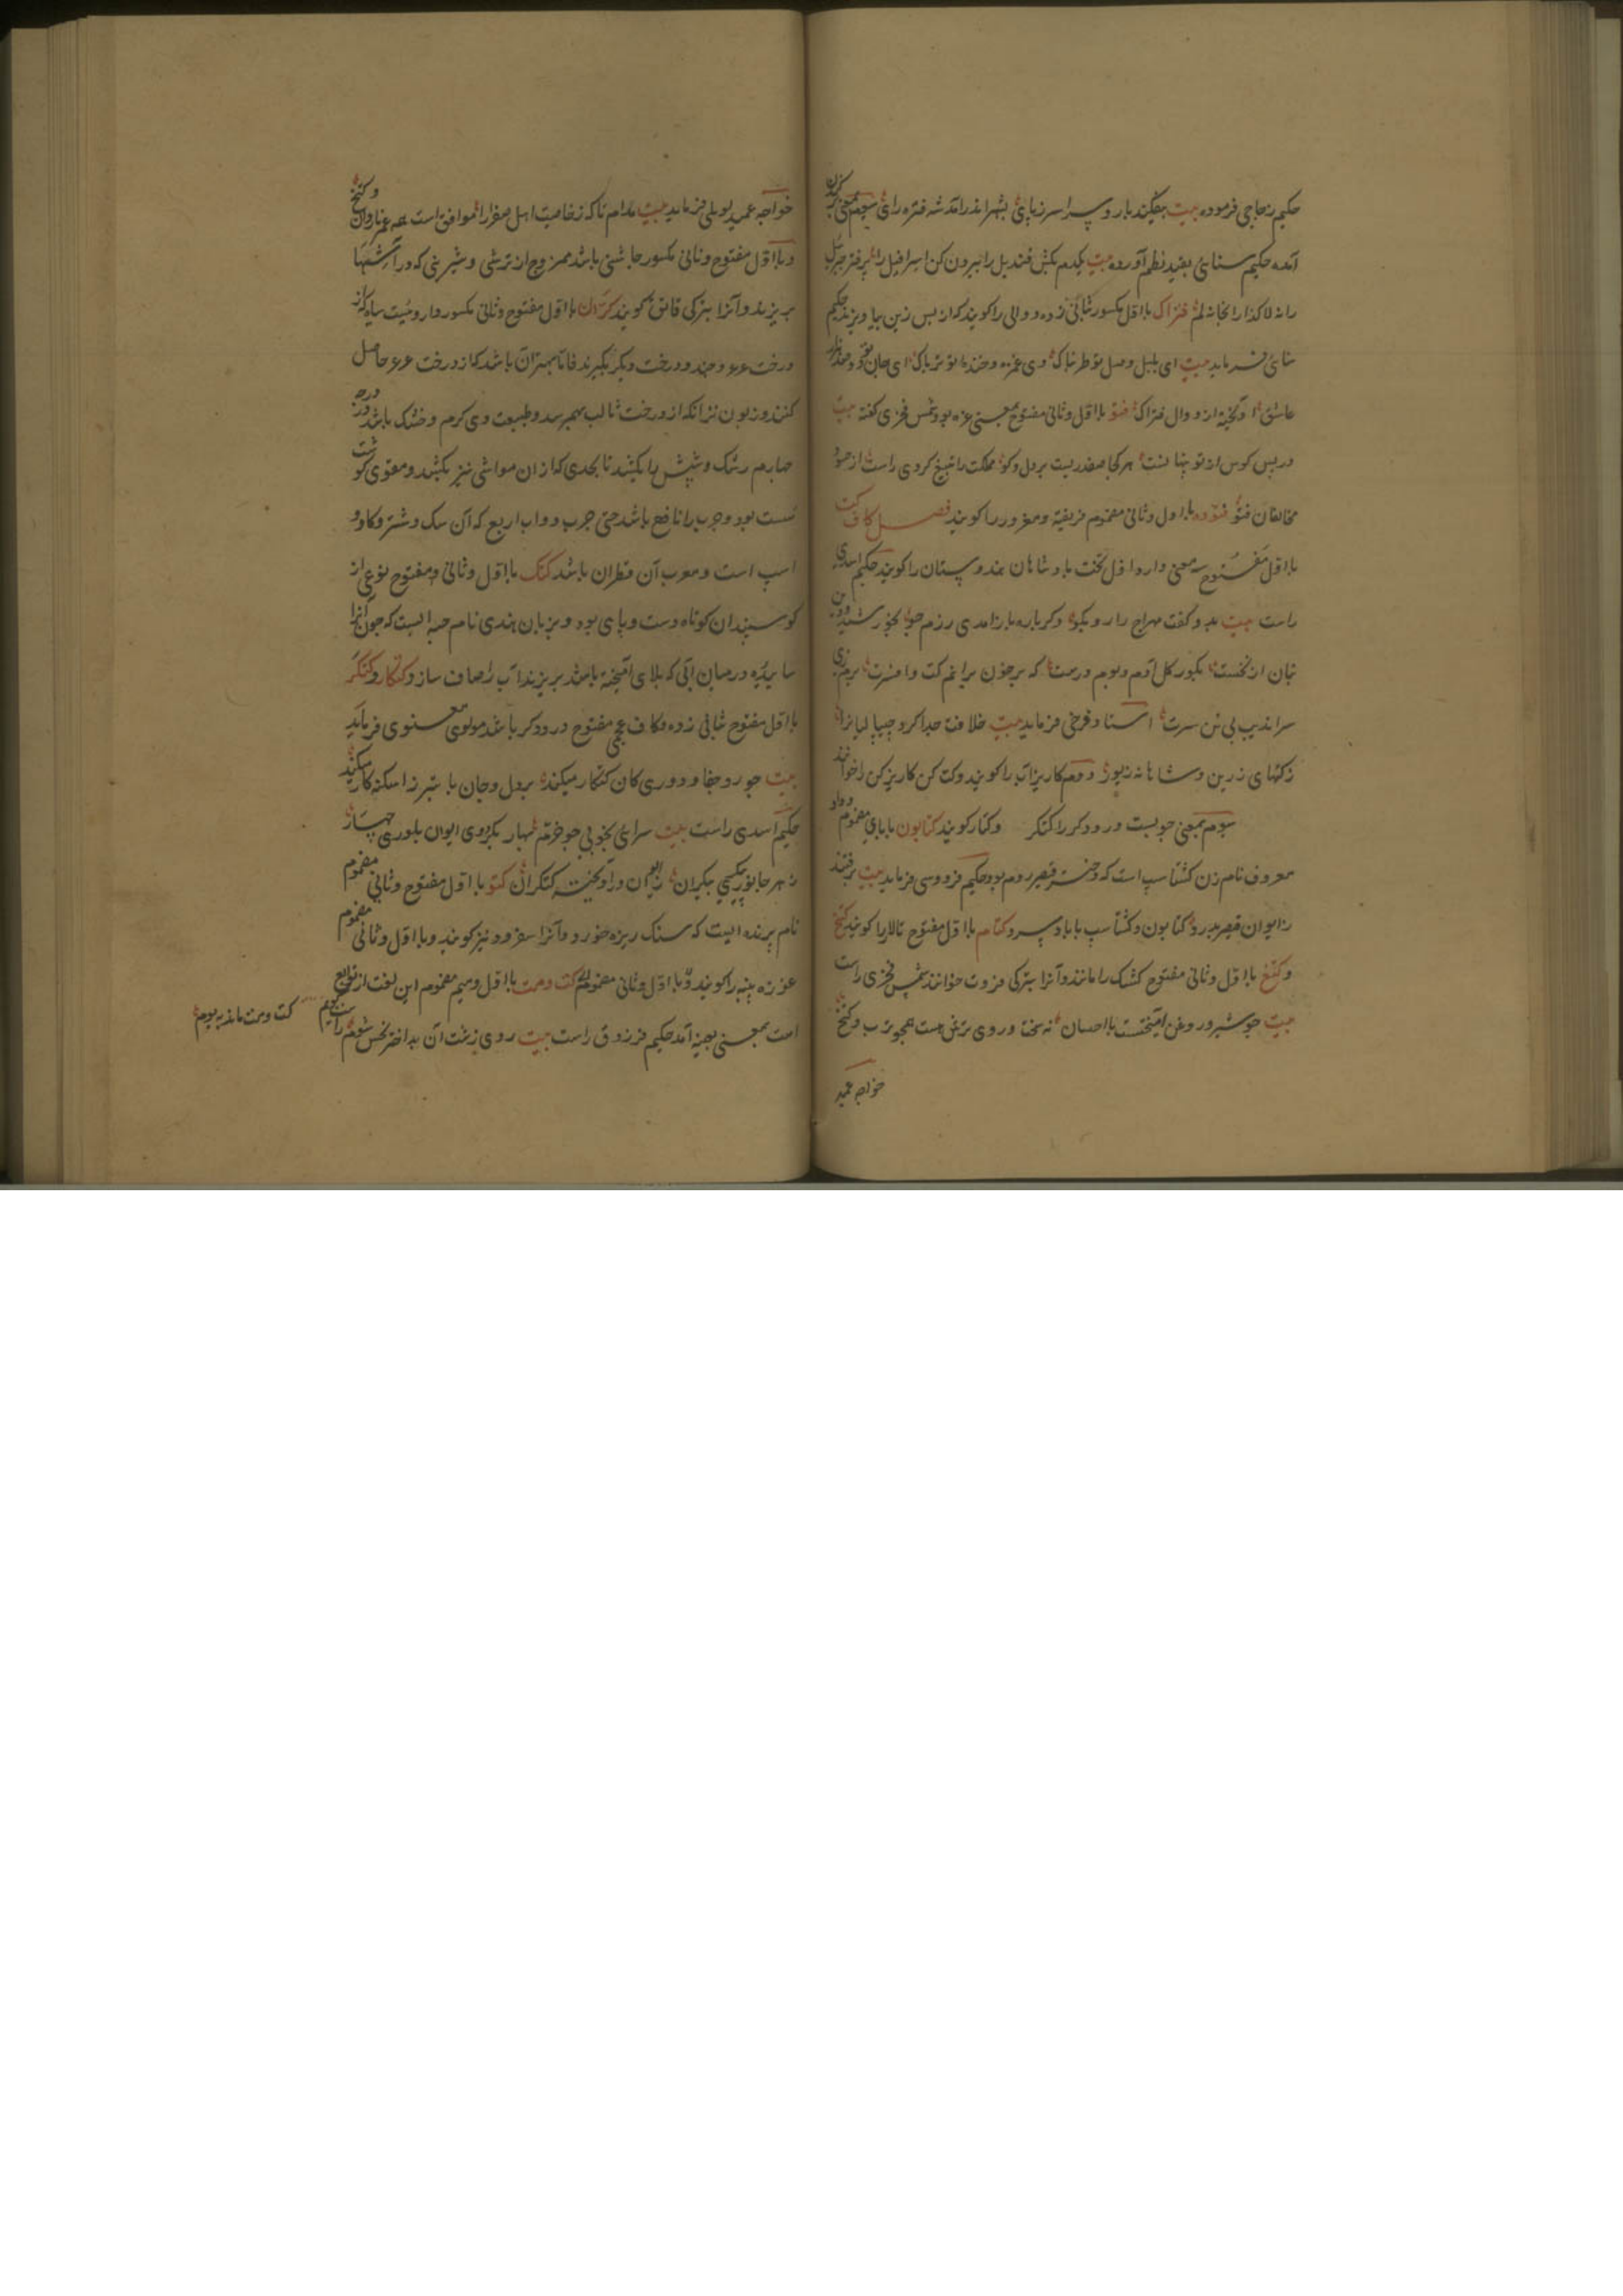 حکیم زجاجی فرموده بیت بیفکند بار و پسر اسر زپای بشهر اندر آمد شه فتره رای سیوم بمعنی کردن
آمده حکیم سنائی بقید نظم آورده بیت یکدم بکش قندیل را بیرون کن اسرافیل را پر فتر جبرئیل
را نه لا گذار انجا نه لم فتراک با اول مکسور بثانی زده دوالی را گویند که از پس زین بیاویزند حکیم
سنائی فرماید بیت ای بلبل وصل تو طربناک وی غمزه و خنده تو تریاک ای جان تو و صد هزار
عاشق آویخته از دوال فتراک فتو با اول و ثانی مفتوح بمعنی غره بود شمس فخری گفته بیت
در پس کوس از تو پنهانست هر کجا صفدریست پر دل و کو مملکت را بتیغ کردی راست از
مخالفان فتو فتوده با اول و ثانی مضموم فریفته و مغرور را گویند فصل کاف کت
با اول مفتوح سه معنی دارد اول تخت پادشاهان هندوستان را گویند حکیم اسدی
راست بیت بدو گفت مهراج را رو بگو دگرباره باز آمدی رزم جو بخورشید و دین
بتان از نخست بگور کل آدم و بوم درست که بر خون برانم کت و افسرت برم زی
سراندیب بی تن سرت استاد فرخی فرماید بیت خلافت جدا کرد جیپالیانرا
ز کتهای زرین و شاهانه زیور دوم کاریز آب را گویند و کت کن کاریز کن را خوانند
سیوم بمعنی چوبست و درودگر را کتگر و کتکار گویند کتابون با بای مضموم و واو
معروف نام زن گشتاسپ است که دختر قیصر روم بود حکیم فردوسی فرماید بیت برفتند
ز ایوان قیصر بدرد کتابون و گشتاسپ با باد سرد کتام با اول مفتوح تالار را گویند کتخ
و کتغ با اول و ثانی مفتوح کشک را مانند و آنرا بترکی قروت خوانند شمس فخری راست
بیت چو شیر و روغن آمیختست با احسان نه سخت و روی ترش هست همچو ترب و کتخ
خواجه عمید
خواجه عمید لویکی فرماید بیت مدام تا که ز خاصیت اهل صفرا را موافق است همه عمر ناردان و کتخ
و با اول مفتوح و ثانی مکسور چاشنی باشد ممزوج از ترشی و شیرینی که در آشها
بریزند و آنرا بترکی قاتق گویند کتران با اول مفتوح و ثانی مکسور داروئیست سیاه که از
درخت عرعر و چند درخت دیگر بگیرند فاما بهتر آن باشد که از درخت عرعر حاصل
کنند و زبون تر آنکه از درخت تالب بهم رسد و طبیعت وی گرم و خشک باشد در درجه
چهارم رشک و شپش را بکشد تا بحدی که از ان مواشی نیز بکشد و مقوی گوشت
سست بود و جرب را نافع باشد حتی جرب دواب اربع که آن سگ و شتر و گاو و
اسپ است و معرب آن قطران باشد کتک با اول و ثانی مفتوح نوعی از
گوسپندان کوتاه دست و پای بود و بزبان هندی نام حبه ایست که چون آنرا
سائیده در میان آبی که بلای آمیخته باشد بریزند آب را صاف سازد کتکار و کتگر
با اول مفتوح بثانی زده و کاف عجمی مفتوح درودگر باشد مولوی معنوی فرماید
بیت جور و جفا و دوری کان کتکار میکند بر دل و جان با تبر ز اسکنه کار میکند
حکیم اسدی راست بیت سرائی بخوبی چو خرم بهار بکردوی ایوان بلورین چهار
ز هر جانور پیکر بیکران از ایوان درآویخته کتگران کتو با اول مفتوح و ثانی مضموم
نام پرنده ایست که سنگ ریزه خورد و آنرا سفرود نیز گویند و با اول و ثانی مضموم
غوزه پنبه را گویند و با اول و ثانی مضموم کت و مت با اول و میم مضموم این لغت از توابع
است بمعنی بعینه آمد حکیم فرزدق راست بیت روی زشت آن بد اختر نحس شوم راست گویم
کت و مت ماند به بوم